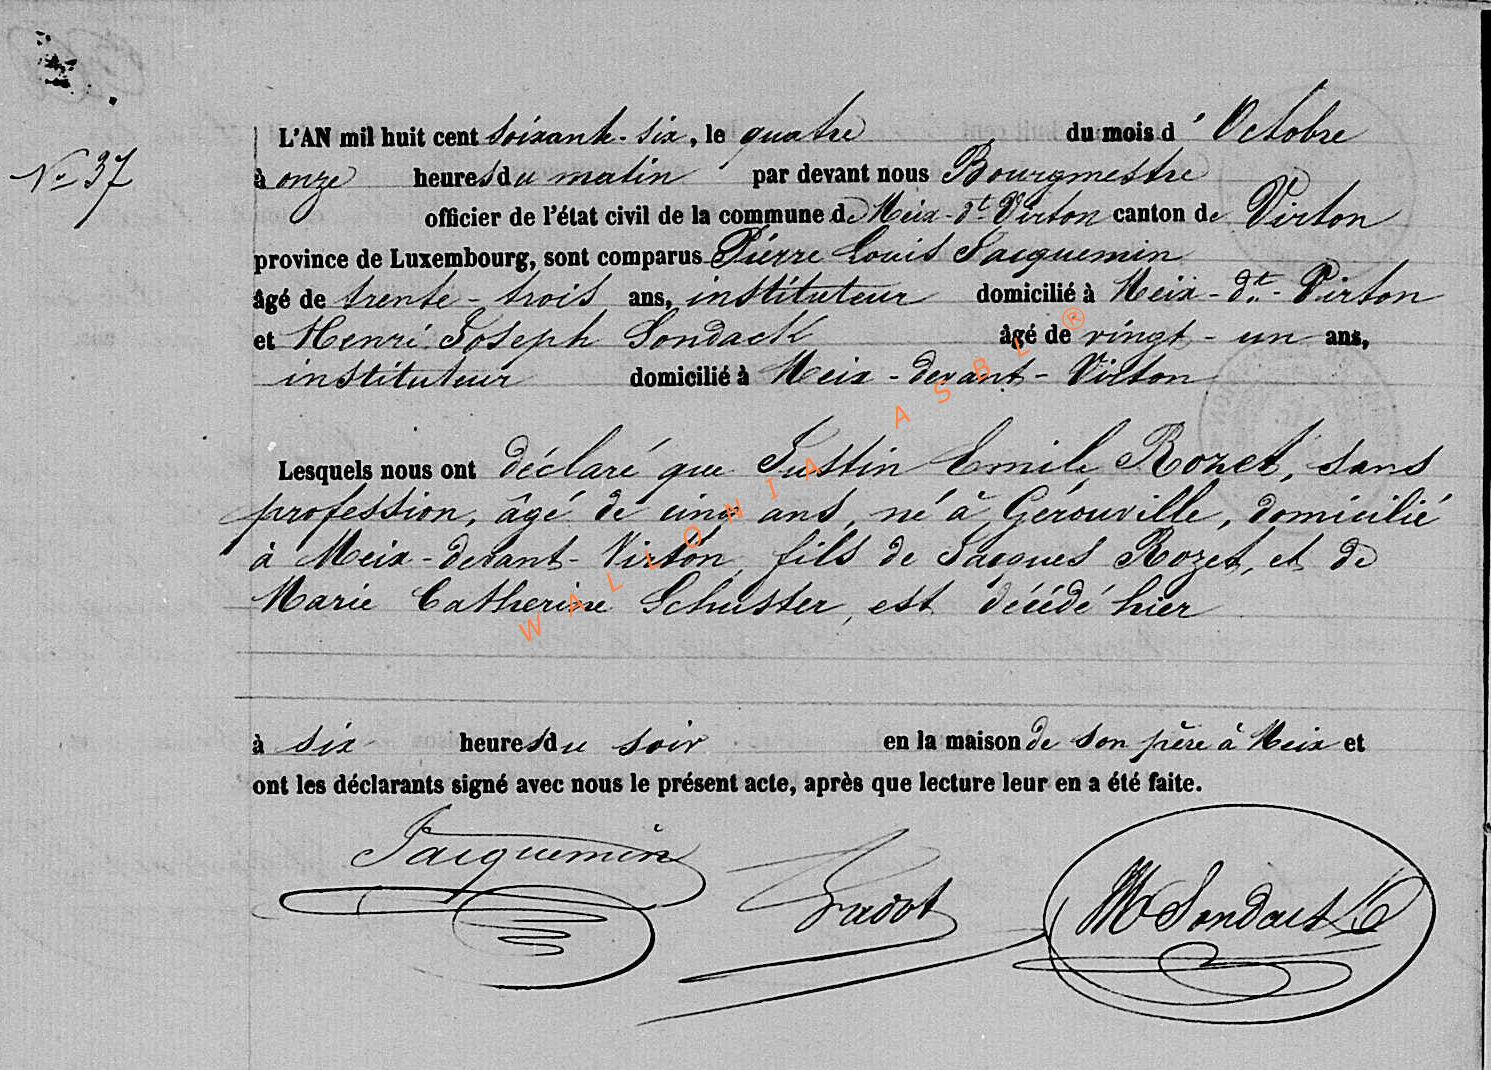 L'AN mil huit cent soixante-six, le quatre du mois d'Octobre
N° 37
à onze heures du matin par devant nous Bourgmestre
officier de l'état civil de la commune de Meix-dt Virton canton de Virton
province de Luxembourg, sont comparus Pierre Louis Jacquemin
âgé de trente-trois ans, instituteur domicilié à Meix-dt-Virton
et Henri Joseph Sondack âgé de vingt-un ans,
instituteur domicilié à Meix-devant-Virton
Lesquels nous ont déclaré que Justin Emile Rozet, sans
profession, âgé de cinq ans, né à Gérouville, domicilié
à Meix-devant-Virton, fils de Jacques Rozet, et de
Marie Catherine Schuster, est décédé hier
à six heures du soir en la maison de son père à Meix et
ont les déclarants signé avec nous le présent acte, après que lecture leur en a été faite.
Jacquemin
Sondack
WALLONIA ASBL ®